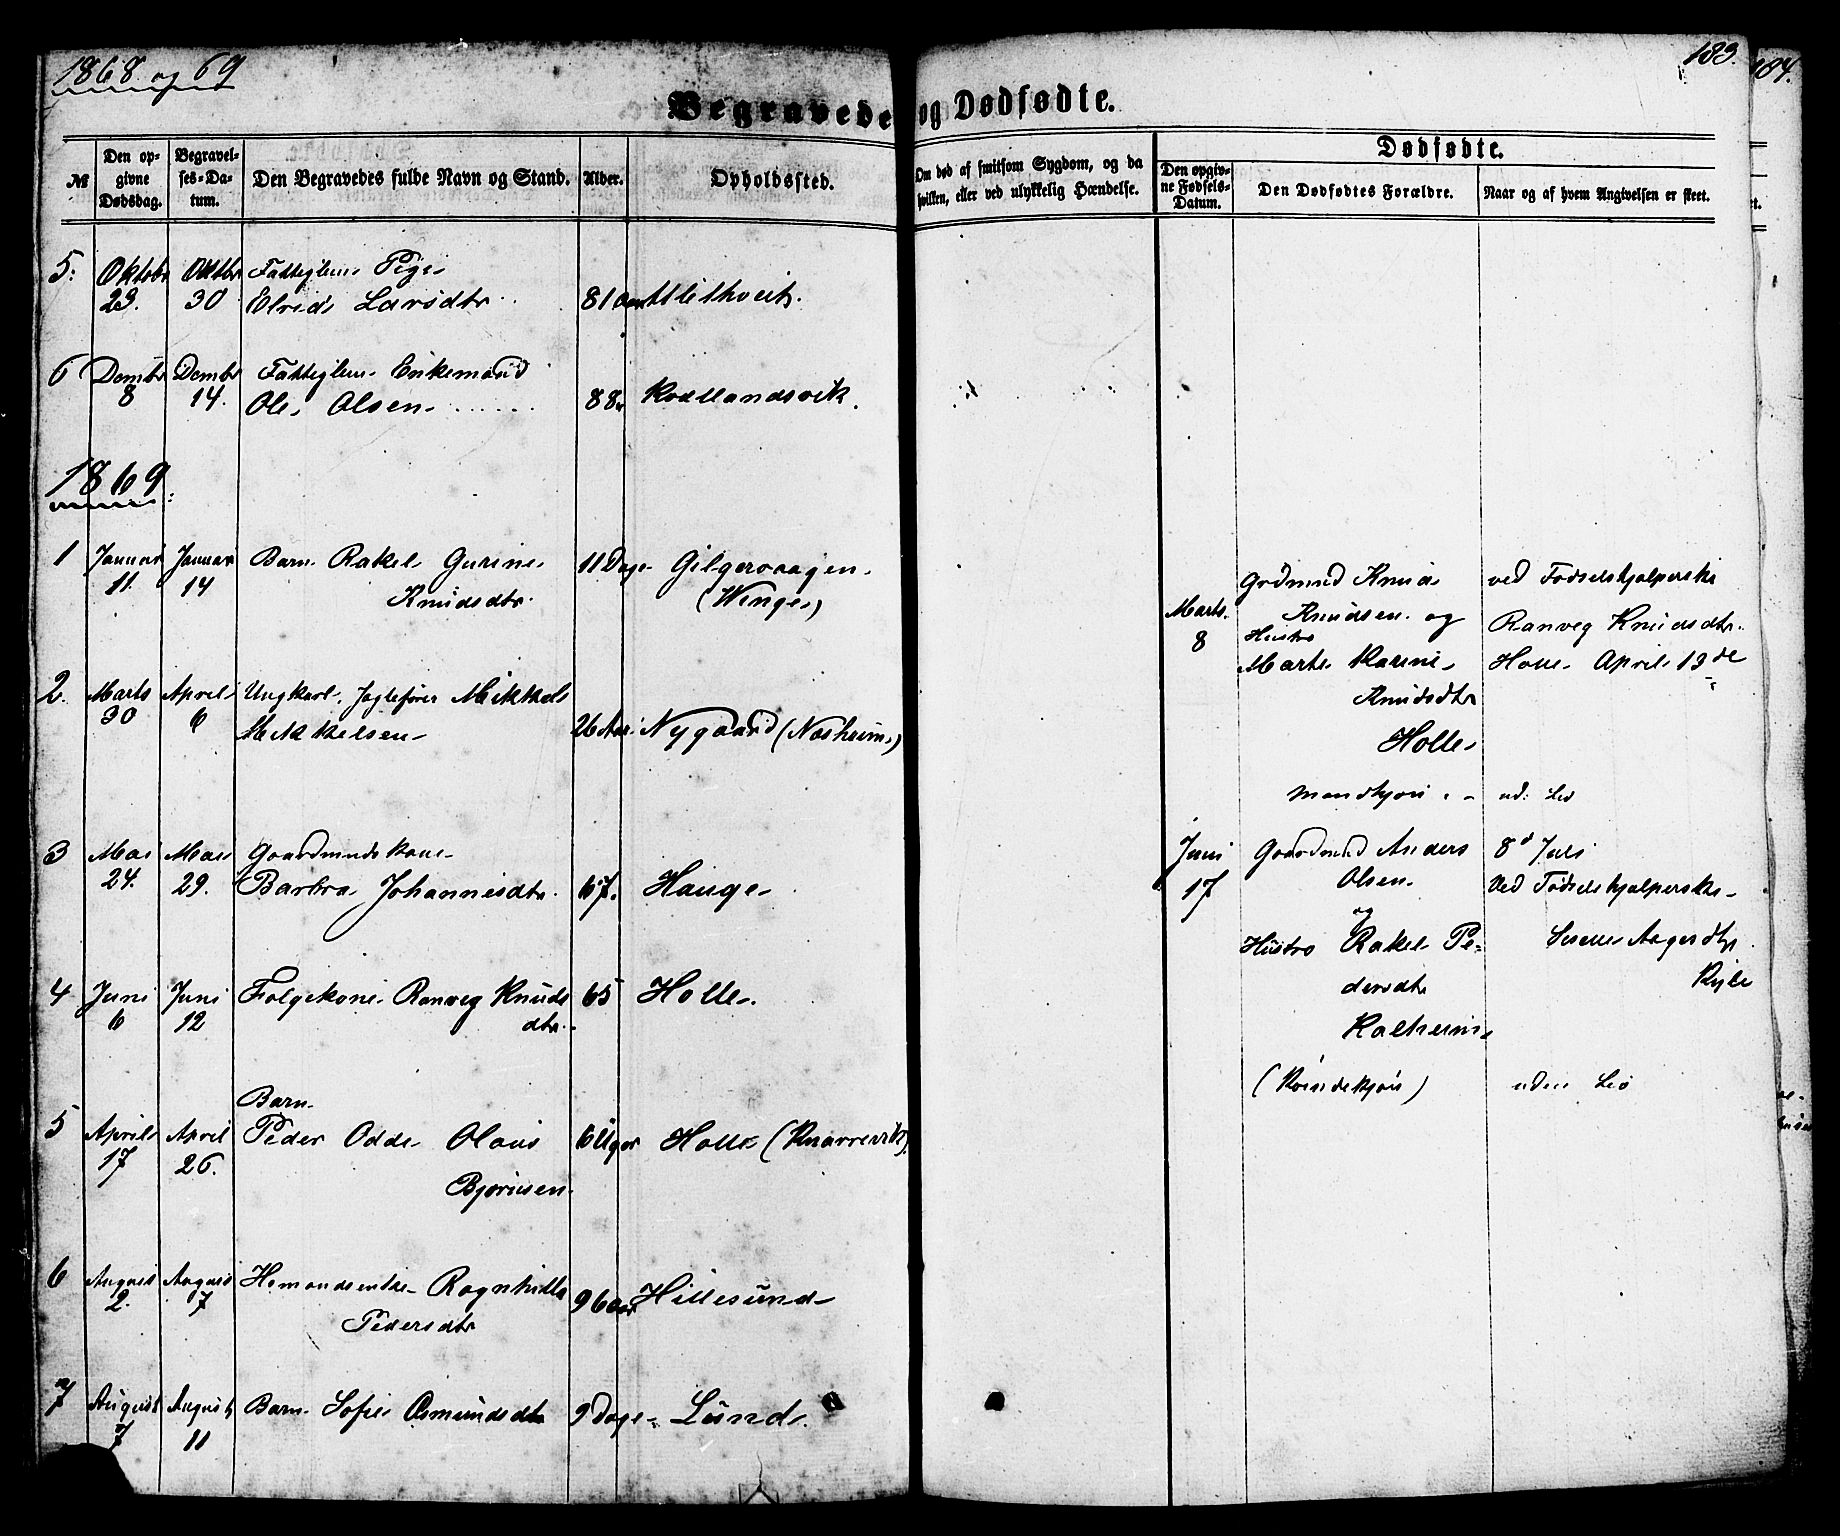 1868 og 69
183.
184.
Begravede og Dødfødte.
№
Den opgivne Dødsdag.
Begravelses-Datum.
Den Begravedes fulde Navn og Stand.
Alder.
Opholdssted.
Om død af smitsom Sygdom, og da hvilken, eller ved ulykkelig Hændelse.
Dødfødte.
Den opgivne Fødsels-Datum.
Den Dødfødtes Forældre.
Naar og af hvem Angivelsen er skeet.
5. Oktobr 23. Oktbr 30 Fattiglem Pige
Larsdtr 81 aar
6 Dcmbr 8 Dcmbr 14. Fattiglem Enkemand
Ole Olsen 88
1869
1 Januar 11. Januar 14 Barn Rakel Gurine
Knudsdtr. 11 Dage
2. Marts 30 April 6 Ungkarl, Mikkel
Mikkelsen 26 Aar Nygaard
3 Mai 24. Mai 29. Gaardmandskone
Barbra Johannesdtr. 67. Hauge
4 Juni 6 Juni 12 Folgekone Ranveg Knuds
dtr. 65 Holle.
5 April 17 April 26. Barn
Peder Odde Olaus
Bjørnsen 6 Uger Holle (Knarrevik)
6 August 2. August 7 Ragnhilde
Pedersdtr 96 aar Hillesund
7 August 7 August 11 Barn Sofie Osmundsdtr 9 Dage Lund
Marts. 8
Grdmnd Knud
Knudsen og
Hustro
Marte Karine
Knudsdtr
Holle
Mandkjøn
ved Fødselshjælperske
Ranveg Knudsdtr.
Holle April 13de
Juni 17
Gaardmnd Anders
Olsen
og
Hustro Rakel Pe-
dersdtr
(Kvindekjøn)
8d Juli
Ved Fødselshjælperske
uden